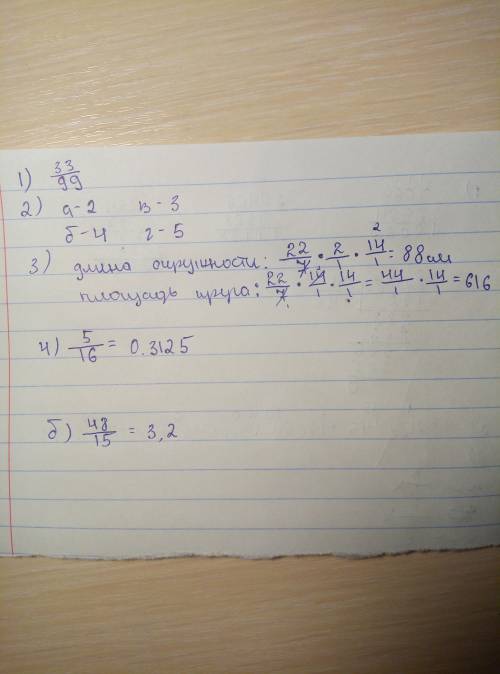 1) 33/99
2) а-2 в-3
б-4 г-5
3) длина окружности: 22/7 · 2/1 · 14/1 2 = 88см
площадь круга: 22/7 · 14/1 · 14/1 = 44/1 · 14/1 = 616
4) 5/16 = 0.3125
б) 48/15 = 3,2